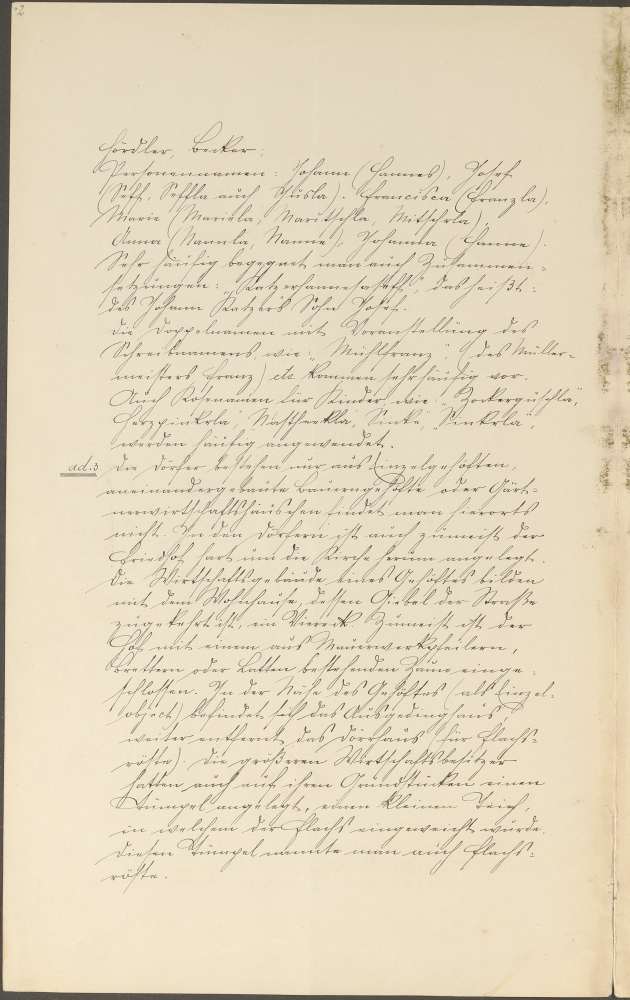 2
Hördler, Becker:
Personennamen: Johann (Hannes), Josef
(Seff, Seffla auch Pusla). Francisca (Franzla),
Marie (Mariela, Marutschla, Mitschela),
Anna (Nannla, Nanne), Johanna (Hanne).
Sehr häufig begegnet man auch Zusammen-
setzungen: „Katzerhanneseseff", das heißt:
des Johann Katzer's Sohn Josef.
Die Doppelnamen mit Voranstellung des
Schreibnamens, wie: „Mühlfranz" (des Müller-
meisters Franz) etc. kommen sehr häufig vor.
Auch Kosenamen für Kinder, wie: „Zockerguschla,
Herzpinkrla, Nasthockla, Sinke, Sinkrla",
werden häufig angewendet.
ad. 3 Die Dörfer bestehen nur aus Einzelgehöften,
aneinandergebaute Bauerngehöfte oder Gärt-
nerwirtschaftshäuschen findet man hierorts
nicht. In den Dörfern ist auch zumeist der
Friedhof hart um die Kirche herum angelegt.
Die Wirtschaftsgebäude eines Gehöftes bilden
mit dem Wohnhause, dessen Giebel der Straße
zugekehrt ist, ein Viereck. Zumeist ist der
Hof mit einem aus Mauerwerkpfeilern,
Brettern oder Latten bestehenden Zaune einge-
schlossen. In der Nähe des Gehöftes (als Einzel-
object) befindet sich das Ausgedinghaus,
weiter entfernt das Dörrhaus (für Flachs-
röste). Die größeren Wirtschaftsbesitzer
hatten auch auf ihren Grundstücken einen
Tümpel angelegt, einen kleinen Teich,
in welchem der Flachs eingeweicht wurde.
Diesen Tümpel nannte man auch Flachs-
röste.